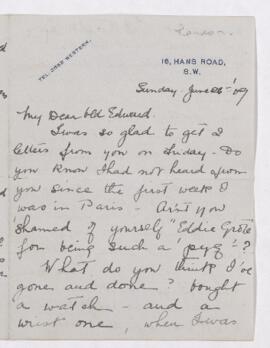 16, HANS ROAD,
S.W.
TEL. 2068 WESTERN.
Sunday June '09
My Dear old Edward.
I was so glad to get 2
letters from you on Sunday - Do
you know I had not heard from
you since the first week I
was in Paris - Ar'nt you
'shamed of yourself "Eddie
for being such a 'pyg'?
What do you think I've
gone and done? bought
a watch - and a
wrist one, when I was